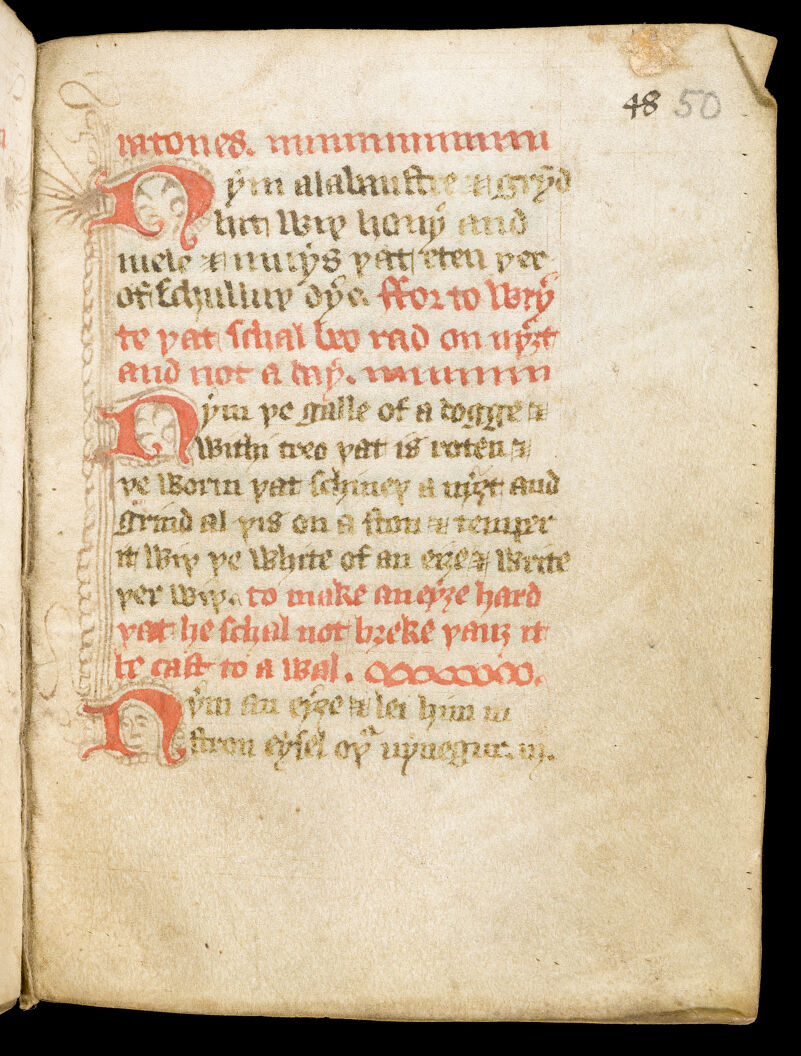 48 50
ratones.
Nym alabaustre & grynd
hit wiþ hony and
mele & muys þat eten þer
of schulluþ dye. ffor to wry
te þat schal beo rad on nyȝt
and not a day.
Nym þe galle of a dogge &
with treo þat is roten &
þe worm þat schineþ a nyȝt and
grind al þis on a ston & temper
it wiþ þe white of an eye & write
þer wiþ. to make an eyȝe hard
þat he schal not breke þauȝ it
be cast to a wal.
Nym an eyȝe & lei him in
stron eysel oþer vynegur. iij.